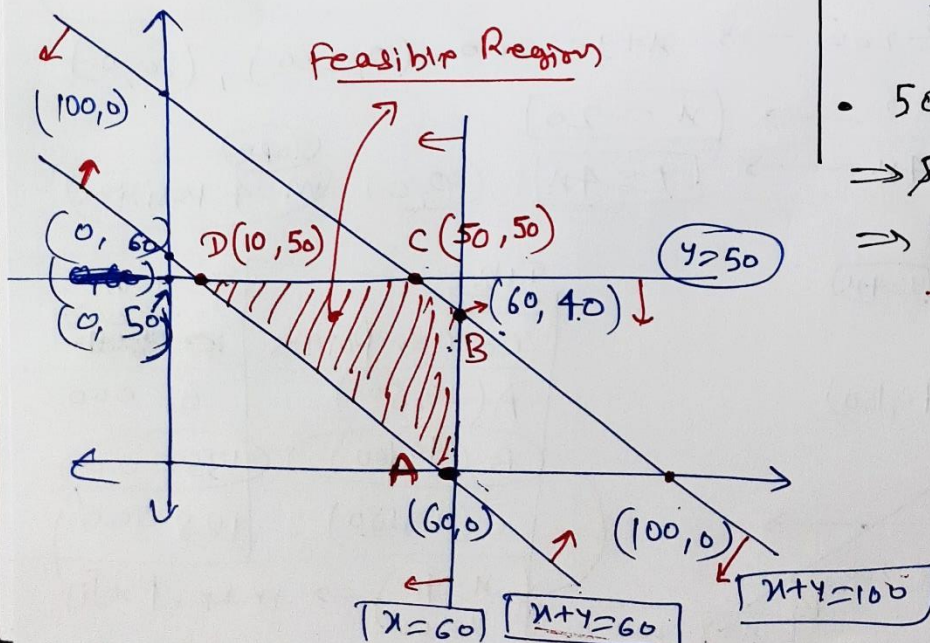 Feasible Region
(100,0)
• 50
⇒
(0, 60)
D(10,50)
C(50,50)
y=50
⇒
(0, 50)
(60, 40)
B
A
(60,0)
(100,0)
x=60
x+y=60
x+y=100